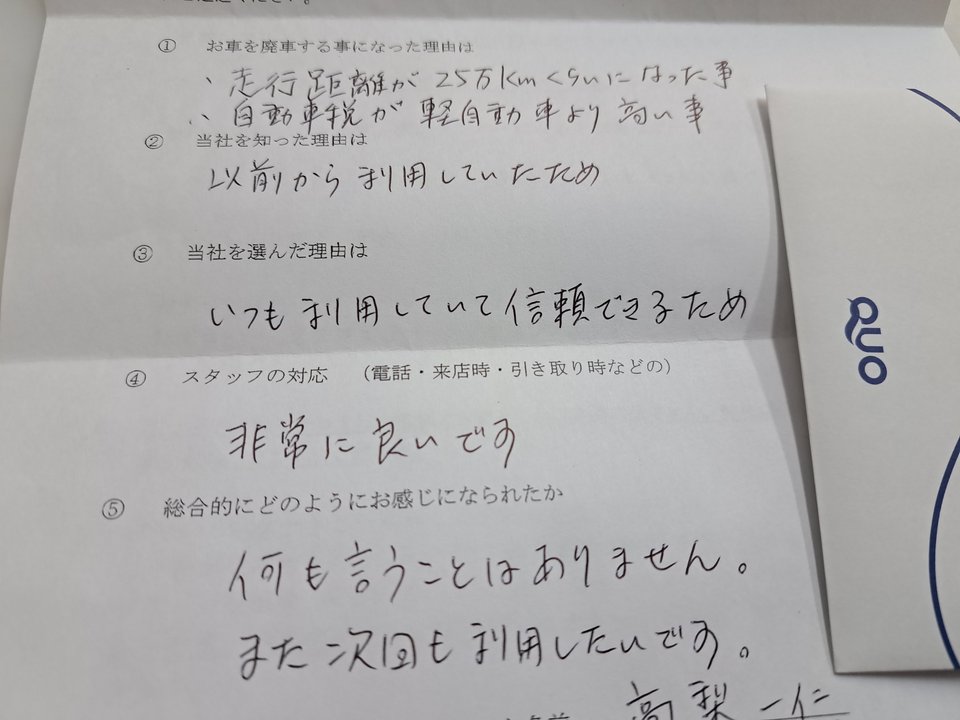 ① お車を廃車する事になった理由は
、走行距離が25万kmくらいになった事
、自動車税が軽自動車より高い事
② 当社を知った理由は
以前から利用していたため
③ 当社を選んだ理由は
いつも利用していて信頼できるため
④ スタッフの対応 （電話・来店時・引き取り時などの）
非常に良いです
⑤ 総合的にどのようにお感じになられたか
何も言うことはありません。
また次回も利用したいです。
高梨 一仁
QUO